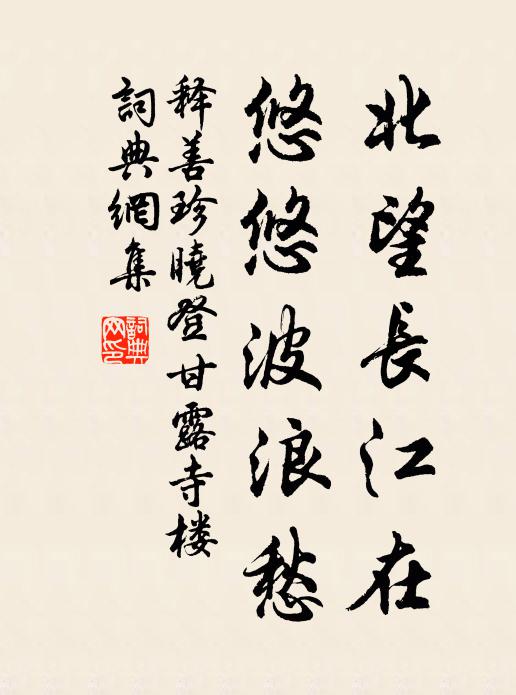 北望長江在
悠悠波浪愁
释善珍曉登甘露寺楼
詞典網集
詞典网印